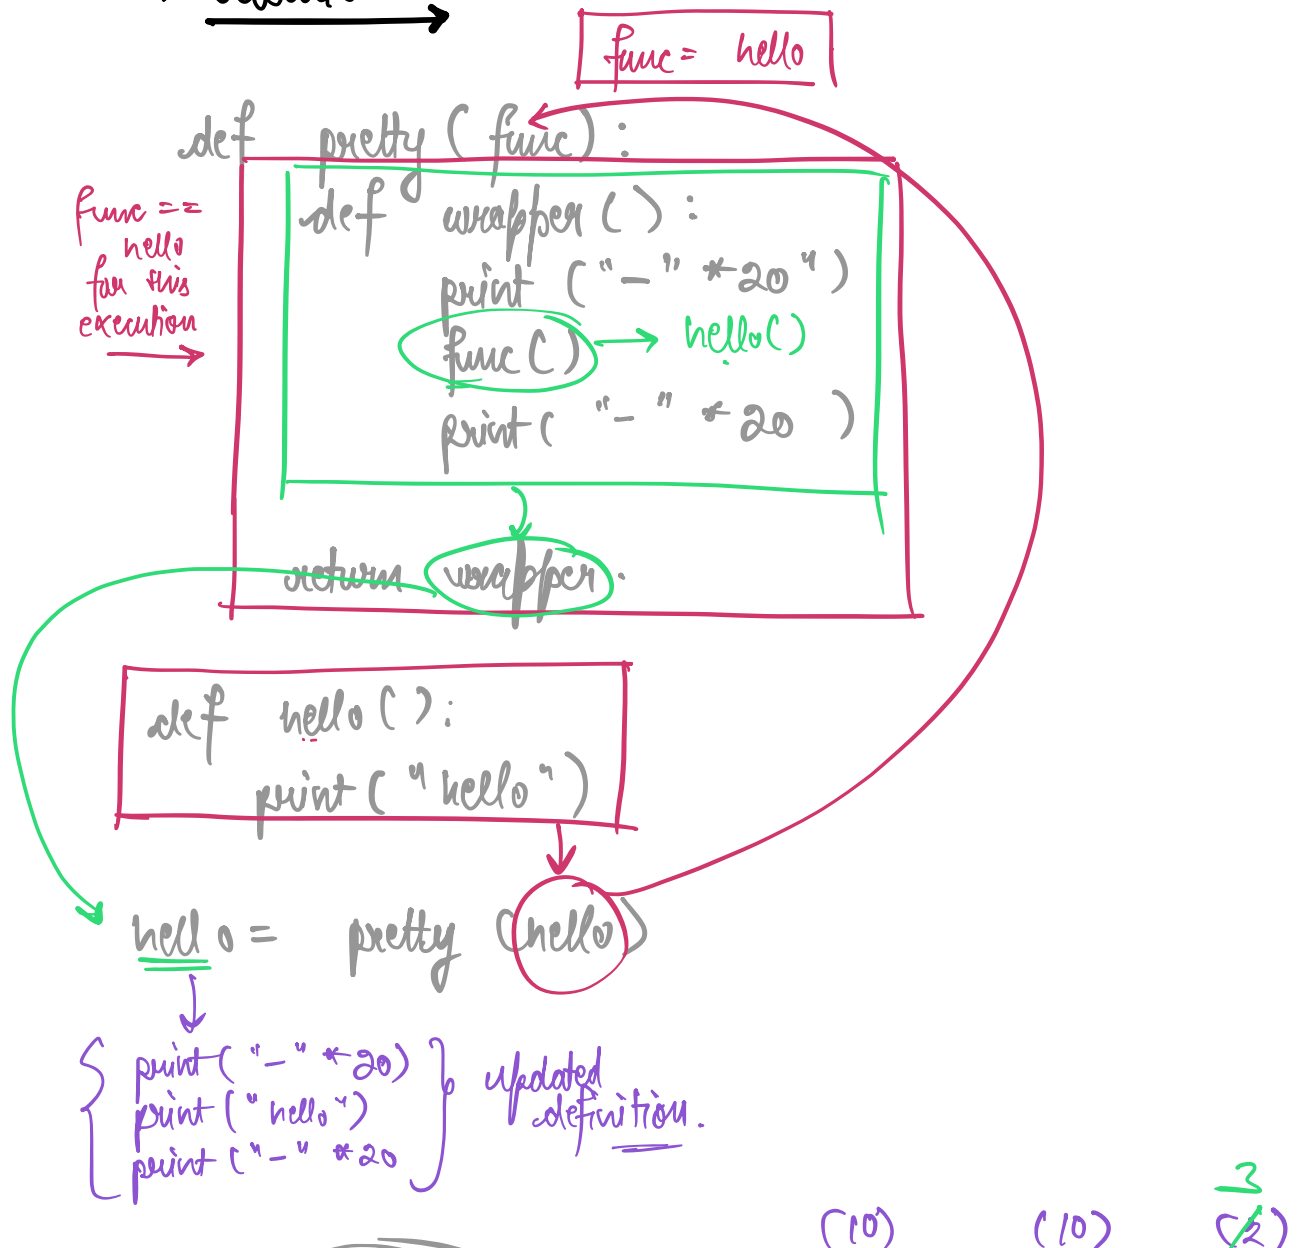 func = hello
def pretty (func) :
func ==
hello
for this
execution
def wrapper () :
print ("-" * 20 ")
func () → hello()
print( "-" * 20 )
return wrapper .
def hello () :
print ( "hello" )
hello = pretty (hello)
print ( "-" * 20)
print ( "hello")
print ( "-" * 20
updated
definition.
3
(10) (10) (2)